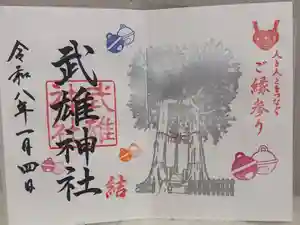 人と人とをつなぐ
ご縁参り
武雄神社
武雄神社
結
令和八年一月四日